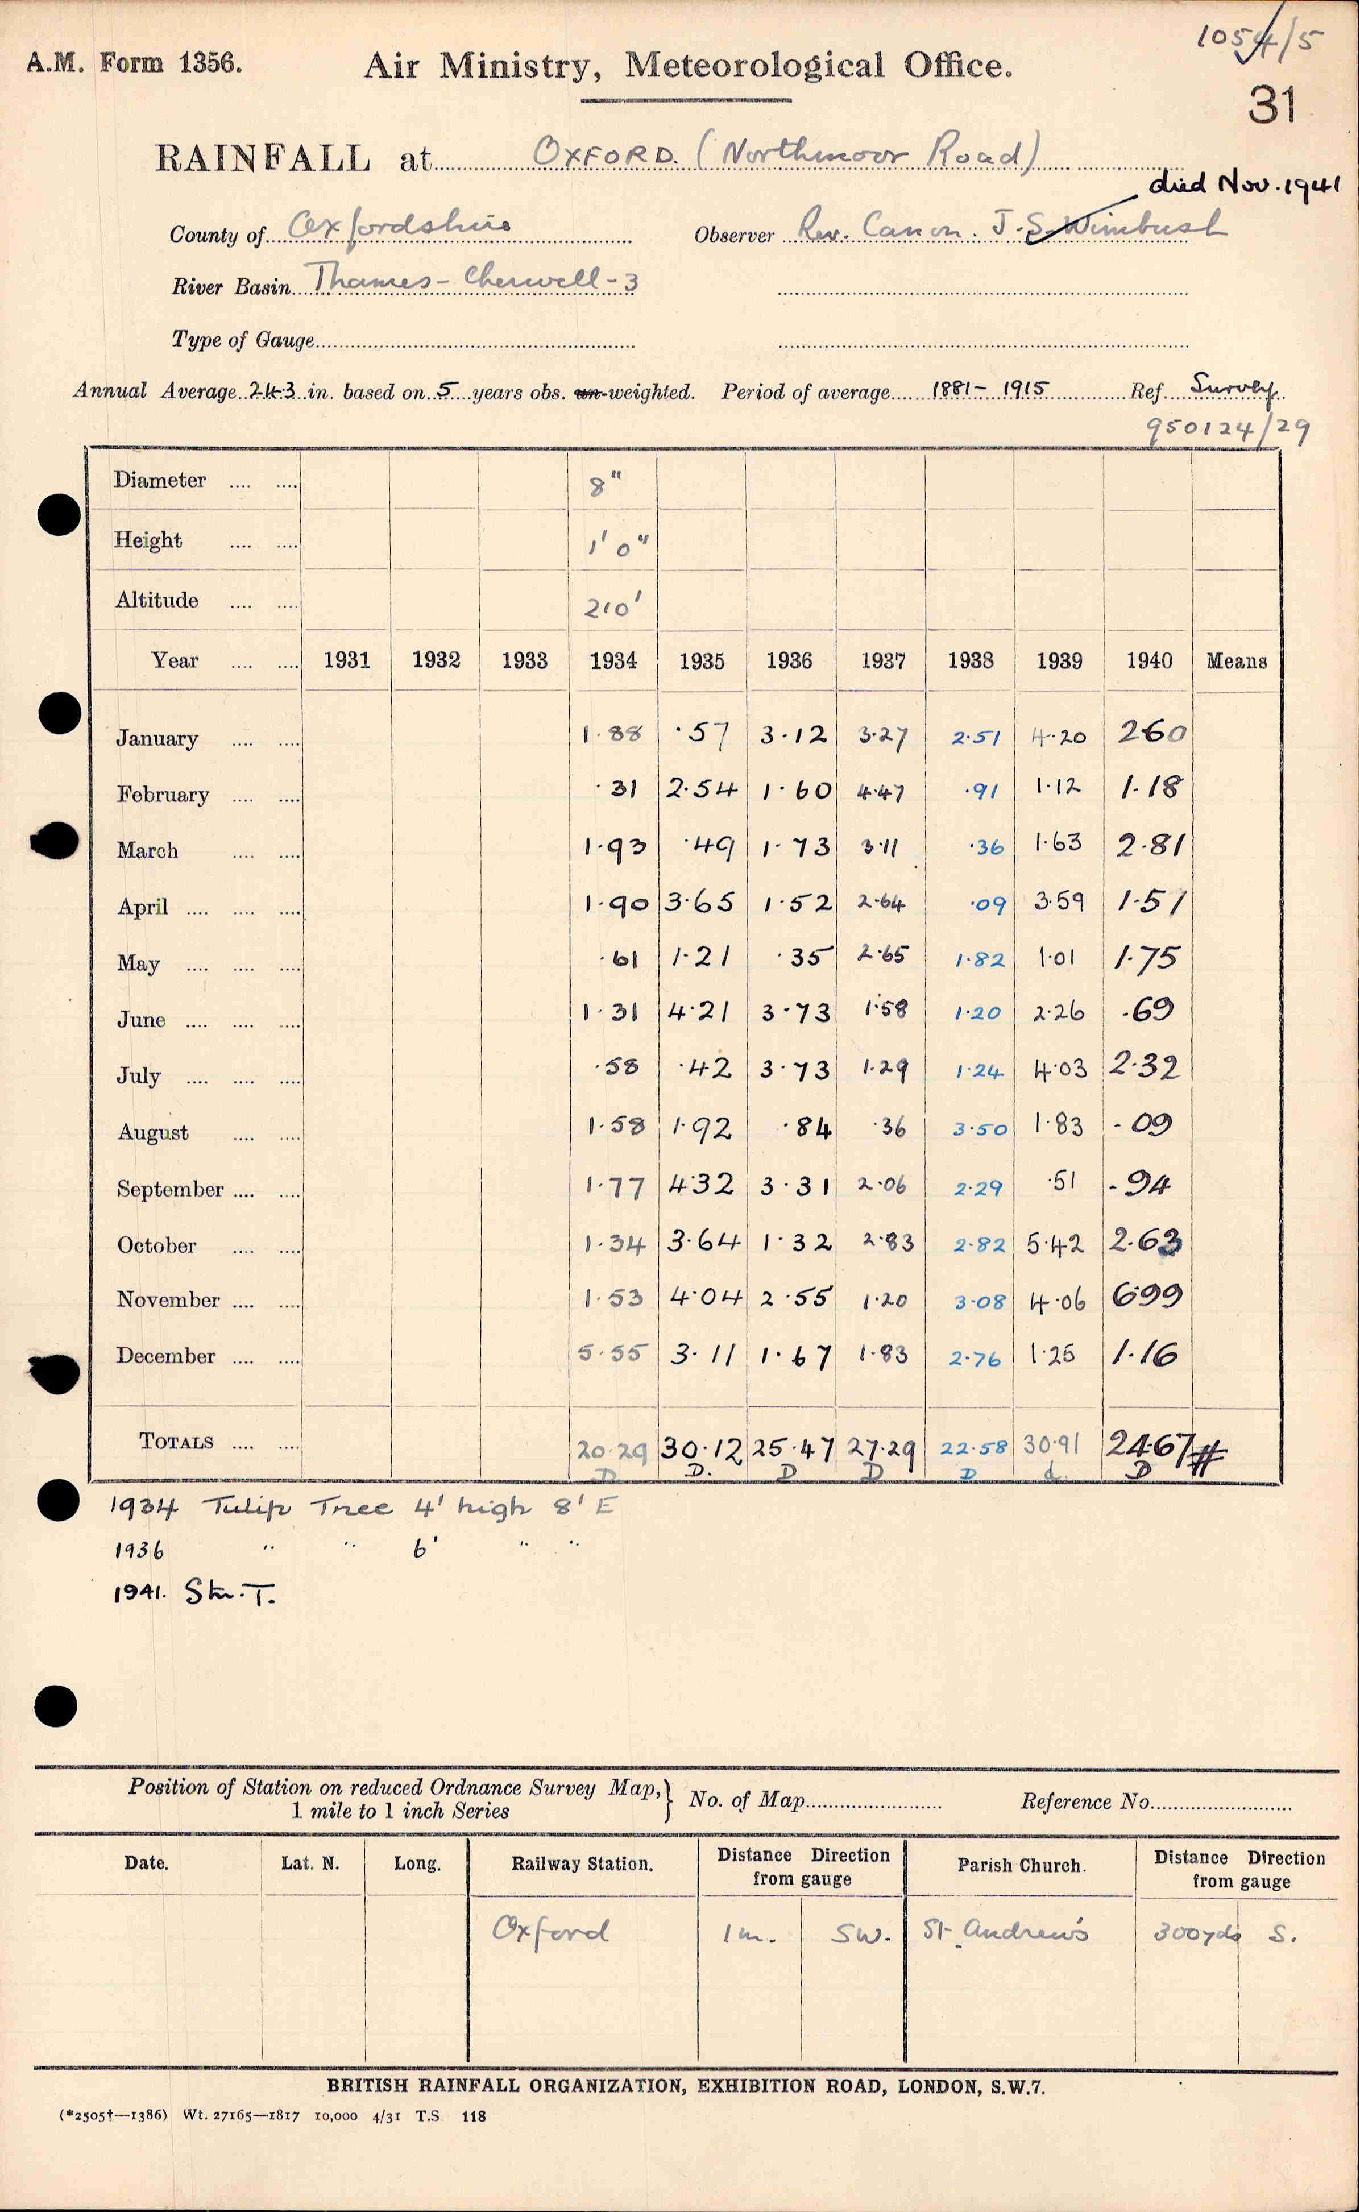 1054/5
A.M. Form 1356. Air Ministry, Meteorological Office.
31
RAINFALL at OXFORD. (Northmoor Road)
died Nov. 1941
County of Oxfordshire Observer Rev. Canon. J. S. Wimbush
River Basin Thames - Cherwell - 3
Type of Gauge
Annual Average 24.3 in. based on 5 years obs. un-weighted. Period of average 1881 - 1915 Ref. Survey
950124/29
Diameter .... .... 8"
Height .... .... 1' 0"
Altitude .... .... 210'
Year .... .... 1931 1932 1933 1934 1935 1936 1937 1938 1939 1940 Means
January .... .... 1.88 .57 3.12 3.27 2.51 4.20 2.60
February .... .... .31 2.54 1.60 4.47 .91 1.12 1.18
March .... .... 1.93 .49 1.73 3.11 .36 1.63 2.81
April .... .... .... 1.90 3.65 1.52 2.64 .09 3.59 1.51
May .... .... .... .61 1.21 .35 2.65 1.82 1.01 1.75
June .... .... .... 1.31 4.21 3.73 1.58 1.20 2.26 .69
July .... .... .... .58 .42 3.73 1.29 1.24 4.03 2.32
August .... .... 1.58 1.92 .84 .36 3.50 1.83 .09
September .... .... 1.77 4.32 3.31 2.06 2.29 .51 .94
October .... .... 1.34 3.64 1.32 2.83 2.82 5.42 2.63
November .... .... 1.53 4.04 2.55 1.20 3.08 4.06 6.99
December .... .... 5.55 3.11 1.67 1.83 2.76 1.25 1.16
TOTALS .... .... 20.29 30.12 25.47 27.29 22.58 30.91 24.67 #
D D. D D D d. D
1934 Tulip Tree 4' high 8' E
1936 " " 6' " "
1941. Stn. T.
Position of Station on reduced Ordnance Survey Map, } No. of Map Reference No.
1 mile to 1 inch Series
Date. Lat. N. Long. Railway Station. Distance Direction from gauge Parish Church. Distance Direction from gauge
Oxford 1m. SW. St Andrew's 300yds S.
BRITISH RAINFALL ORGANIZATION, EXHIBITION ROAD, LONDON, S.W.7.
(*2505†—1386) Wt. 27165—1817 10,000 4/31 T.S 118